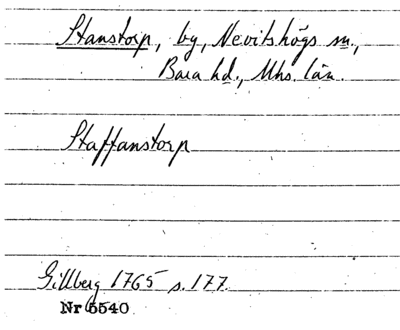 Stanstorp, by, Nevitshögs sn.,
Bara hd., Mhs. län.
Staffanstorp
Gillberg 1765 s. 177.
Nr 5540